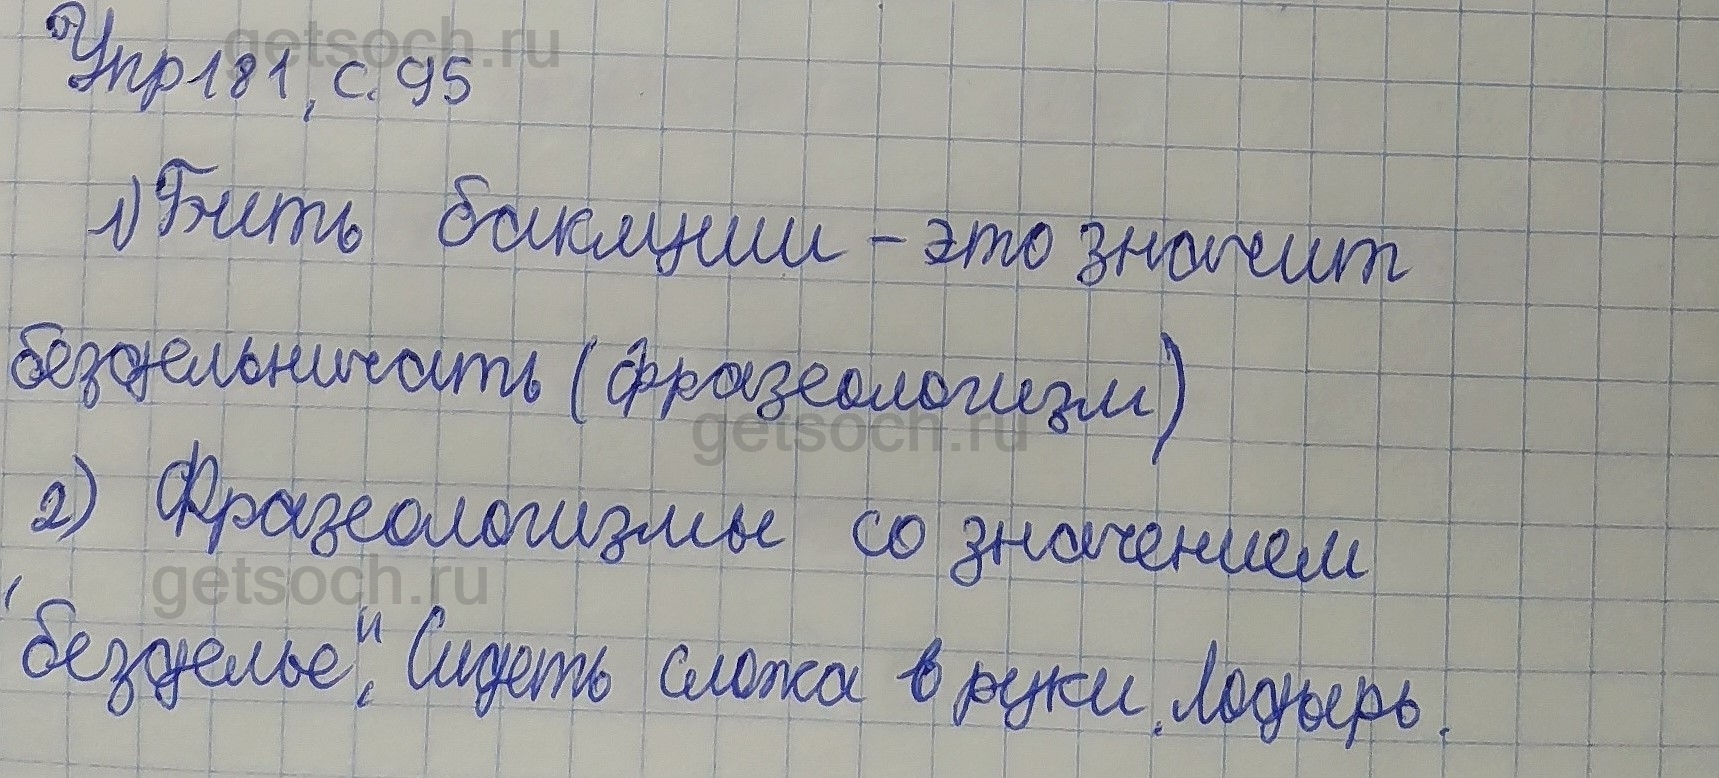 Упр 181, с. 95
1) Бить баклуши - это значит
бездельничать (фразеологизм)
2) Фразеологизмы со значением
"безделье", Сидеть сложа в руки. Лодырь.
getsoch.ru
getsoch.ru
getsoch.ru